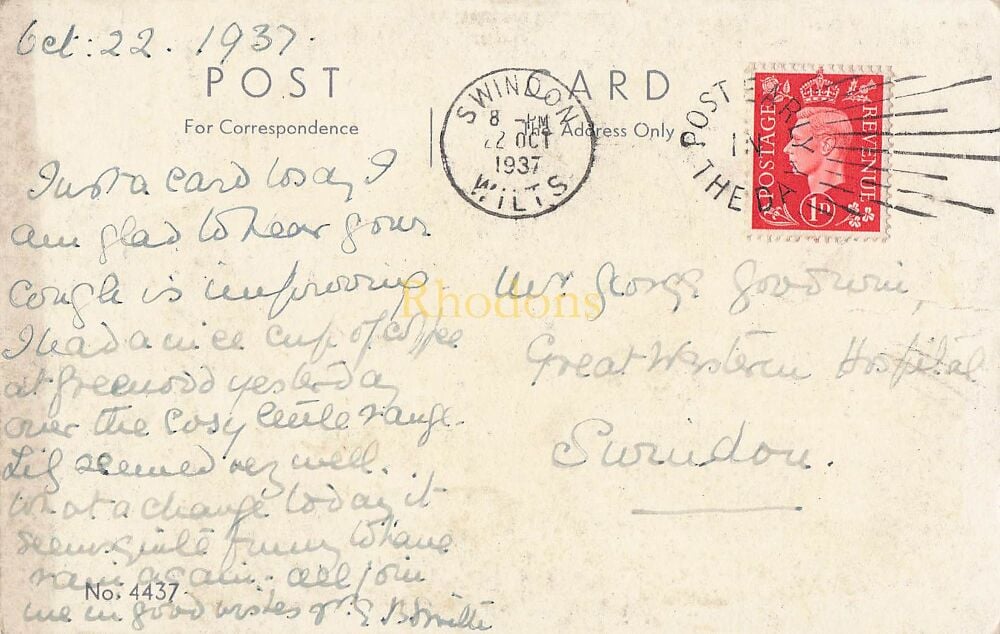 Oct: 22. 1937.
POST CARD
For Correspondence
The Address Only
SWINDON
8 - PM
22 OCT
1937
WILTS
POST EARLY
IN
THE DAY
POSTAGE
REVENUE
1D
Just a card to say I
am glad to hear your
cough is improving.
I had a nice cup of coffee
at Greenwood yesterday
over the cosy little range.
Lily seemed very well.
What a change today it
seems quite funny to have
rain again. all join
me in good wishes yr. E B Smith
Mr George Goodwin,
Great Western Hospital
Swindon.
No. 4437
Rhodons